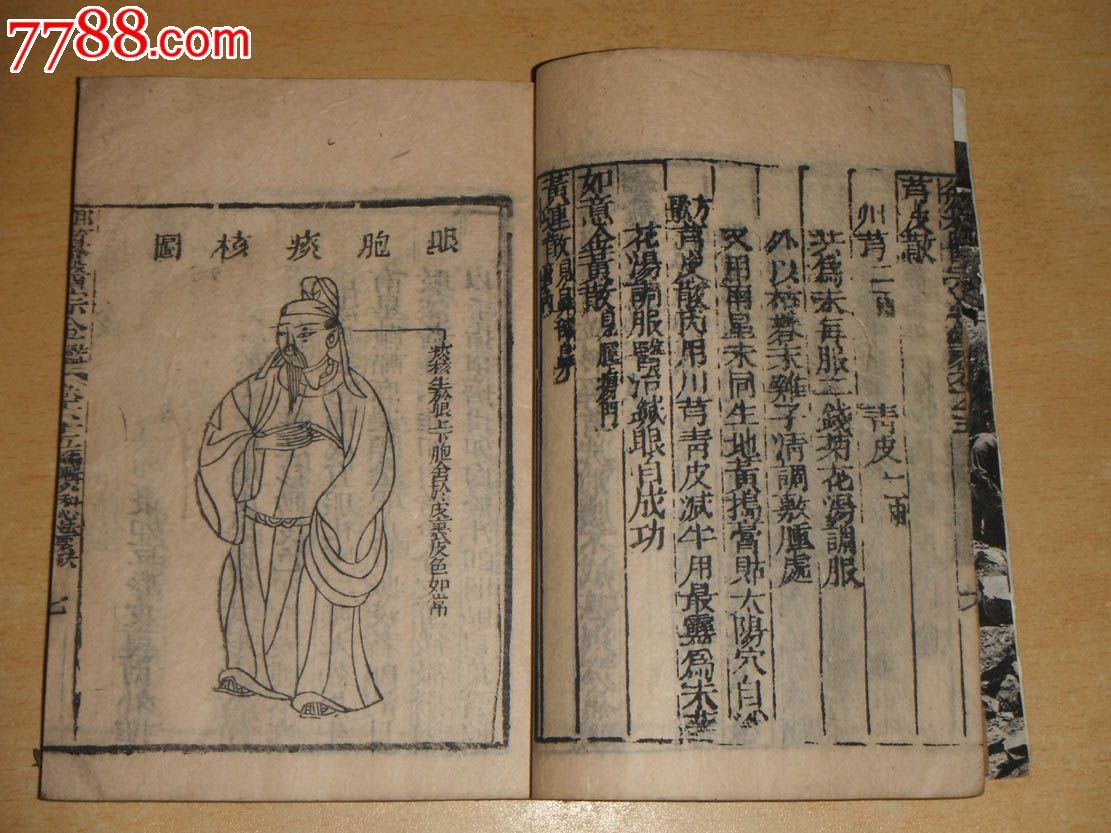 7788.com
芎皮散
州芎二兩 青皮一兩
共為末每服三錢菊花湯調服
外以枯礬末雞子清調敷腫處
又用南星末同生地黃搗膏貼太陽穴自消
方歌 芎皮散內用川芎青皮減半用最靈為末菊
花湯調服醫治鍼眼自成功
如意金黃散見腫瘍門
黃連散見
眼胞痰核圖
痰核生於眼上下胞含於皮裏皮色如常
宗金鑑卷六十五編輯外科心法要訣
七